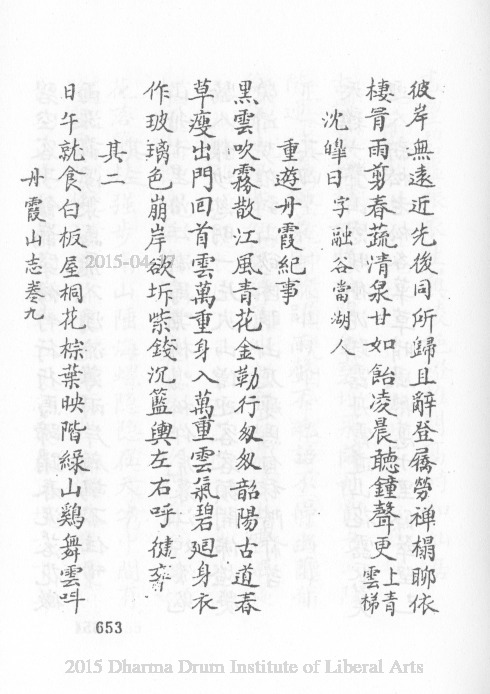 彼岸無遠近先後同所歸且辭登屩勞禪榻聊依
棲冐雨剪春蔬清泉甘如飴凌晨聽鐘聲更上青雲梯
沈皡日字融谷當湖人
重遊丹霞紀事
黑雲吹霧散江風青花金勒行匆匆韶陽古道春
草瘦出門回首雲萬重身入萬重雲氣碧廻身衣
作玻璃色崩岸欲坼紫錢沉籃輿左右呼徤
其二
日午就食白板屋桐花椶葉映階綠山鷄舞雲呌
丹霞山志卷九
653
2015-04-17
2015 Dharma Drum Institute of Liberal Arts